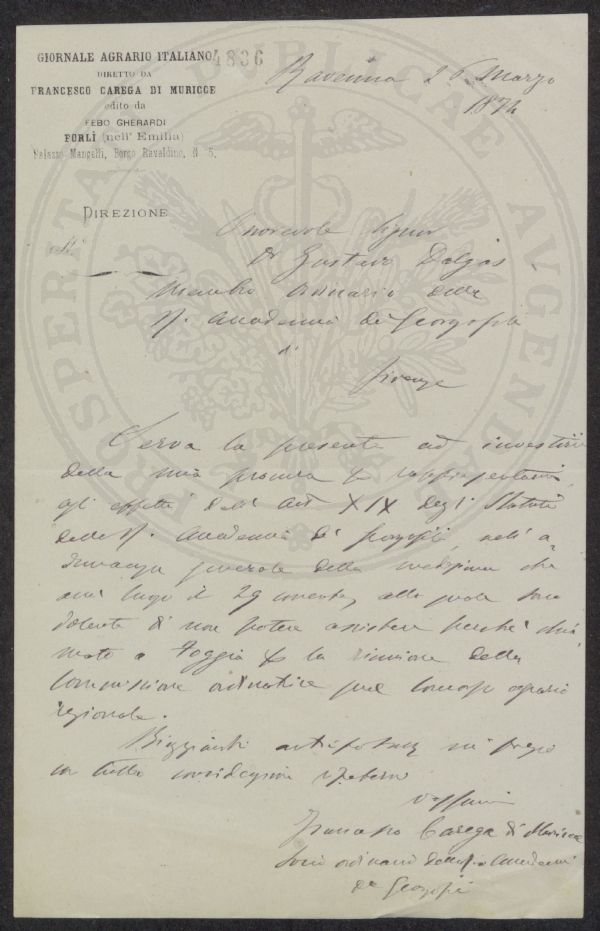 GIORNALE AGRARIO ITALIANO
4836
DIRETTO DA
FRANCESCO CAREGA DI MURICCE
edito da
FEBO GHERARDI
FORLÌ (nell' Emilia)
Palazzo Mangelli, Borgo Ravaldino, N. 5.
Ravenna 26 Marzo
1874
DIREZIONE
Onorevole Signor
Dr Gustavo Dalgas
Membro ordinario della
R. Accademia dei Georgofili
di
Firenze
Serva la presente ad investirla
della mia procura per rappresentarmi
agli effetti dell' Art XIX degli Statuti
della R. Accademia dei Georgofili, nell' a
dunanza generale della medesima che
avrà luogo il 29 corrente, alla quale sono
dolente di non potere assistere perchè chia
mato a Foggia per la riunione della
Commissione ordinatrice pel Concorso agrario
regionale.
Ringraziandola mi pregio
con tutta considerazione
Francesco Carega di Muricce
Socio ordinario della R. Accademia
dei Georgofili
PROSPERITATI PVBLICAE AVGENDAE